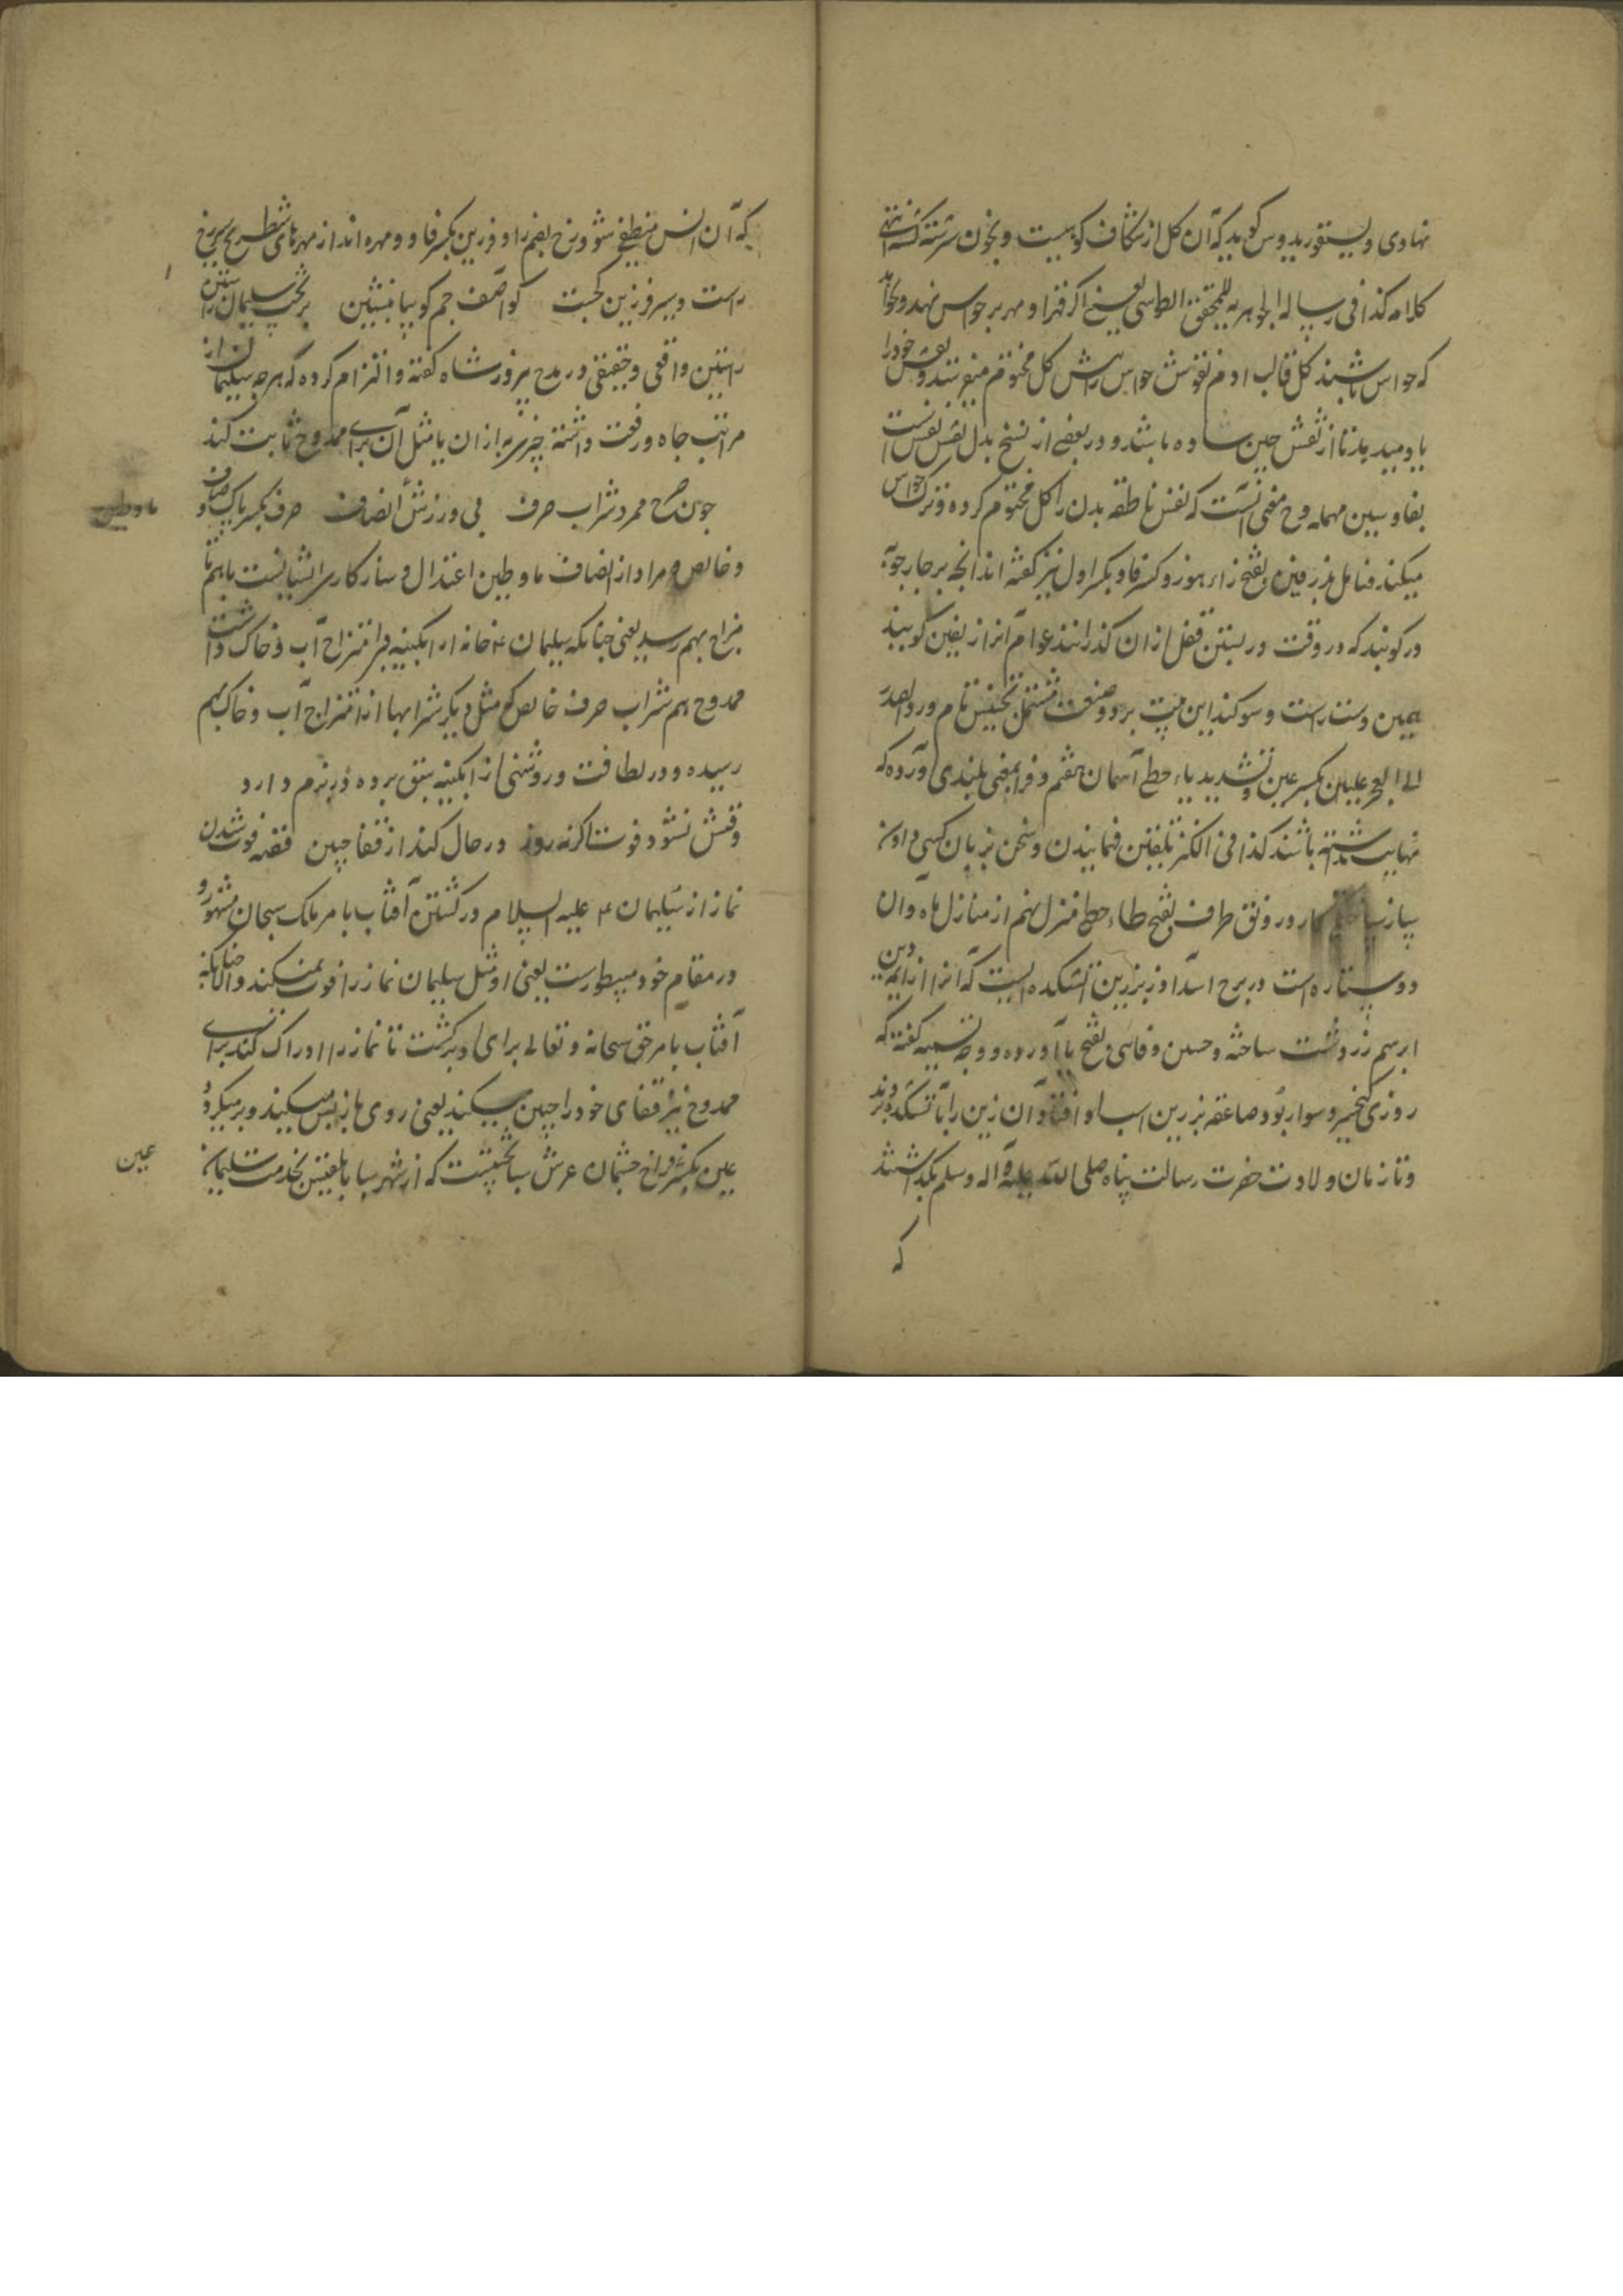 نهاوی و لیسقوریدوس کوید که آن کل از شکاف کوهیست و بخون سرشته کشته انتهی
کلامه کذا فی رساله الجواهریه للمحقق الطوسی یعنی اکر قهر او مهر بر حواس نهد و بخواهد
که حواس نباشند کل قالب ادم نقوش حواس را مثل کل مختوم
تا از نقش حین ساده باشد و در بعضی از نسخ بدل نقس نفس است
بفا و سین مهمله و مخفی نیست که نفس ناطقه بدن را کل مختوم کرده و ترک حواس
میکند فتامل زرفین بفتح زاء هوز و کسر فا و بکسر اول نیز کفته اند انچه بر چارچوبه
در کوبند که در وقت در بستن قفل از ان کذرانند عوام انرا زلفین کویند
یمین دست راست و سوکند این بیت بر دو صنعت مشتمل تجنیس تام و رد الصدر
الی العجز علیین بکسر عین و تشدید یاء حطی آسمان هفتم و فرا بمعنی بلندی آورده که
نهایت نداشته باشند کذا فی الکنز تلقین فهمانیدن و سخن بزبان کسی دادن
پیاز ساختن کار و رونق طرف بفتح طاء حطی منزل نهم از منازل ماه و ان
دو ستاره است در برج اسد اذر برزین آتشکده ایست که انرا از ایمه دین
ابرهیم زردشت ساخته و حسین وفائی بفتح با آورده و وجه تسمیه کفته که
روزی کیخسرو سوار بود صاعقه بر زین اسب او افتاد و آن زین را با تشکده بردند
و تا زمان ولادت حضرت رسالت پناه صلی الله علیه و آله و سلم نکذاشتند
که
که آن اتش منطفی شود و رخ بضم را و فرزین بکسر فا دو مهره اند از مهرهای شطرنج سیر رخ
راست و سیر فرزین کجست کو اصف جم کو بیا ببین بر تخت سلیمان راستین
راستین واقعی و حقیقی در مدح پیروز شاه کفته و التزام کرده که هر چه سلیمان از
مراتب جاه و رفعت داشته چیزی به از ان یا مثل آن برای ممدوح ثابت کند
چون صرح ممرد شراب صرف بی ورزش انصاف صرف بکسر پاک و صاف
و خالص و مراد از انصاف ماء و طین اعتدال و سازکاری ایشانست با هم تا
مزاج بهم رسد یعنی چنانکه سلیمان ۴ خانه از ابکینه بی امتزاج آب و خاک داشت
ممدوح هم شراب صرف خالص که مثل دیکر شرابها از امتزاج آب و خاک بهم
رسیده و در لطافت و روشنی از ابکینه سبق برده در بزم دارد
وقتش نشود فوت اکرنه روز در حال کند از قفا جبین قصه فوت شدن
نماز از سلیمان ۴ علیه السلام و رکشتن آفتاب بامر ملک سبحان مشهور و
در مقام خود مسطور است یعنی او مثل سلیمان نماز را فوت نمیکند و الا چنانکه
آفتاب بامر حق سبحانه و تعالی برای او برکشت تا نماز را ادراک کند برای
ممدوح نیز قفای خود را جبین میکند یعنی روی باز پس میکند و برمیکردد
عین بکسر فراخ چشمان عرش سبا تختیست که از شهر سبا با بلقیس بخدمت سلیمان
ماء و طین
عین